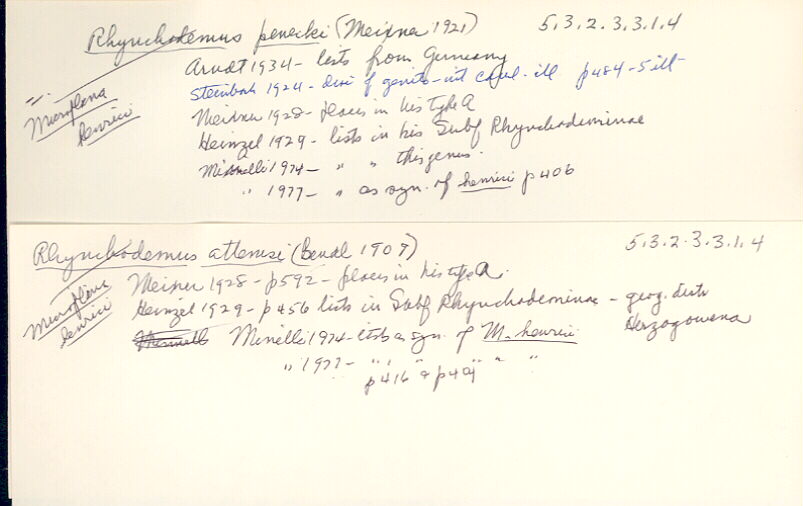 Rhynchodemus penecki (Meixner 1921) 5.3.2.3.3.1.4
Arndt 1934 - lists from Germany
Steinböh 1924 - disc of genito-int canal-ill. p484-5 ill-
Meixner 1928 - places in his type A
Heinzel 1929 - lists in his Subf Rhynchodeminae
Minelli 1974 - " " this genus.
" 1977 - " as syn. of henrici p406
Microplana
henrici
Rhynchodemus attemsi (Bendl 1909) 5.3.2.3.3.1.4
Meixner 1928 - p592 - places in his type A.
Heinzel 1929 - p456 lists in Subf Rhynchodeminae - geog. distr
Herzogowena
Minelli 1974 - lists as syn. of M. henrici
" 1977 - " " " " " "
p416 & p409
Microplana
henrici